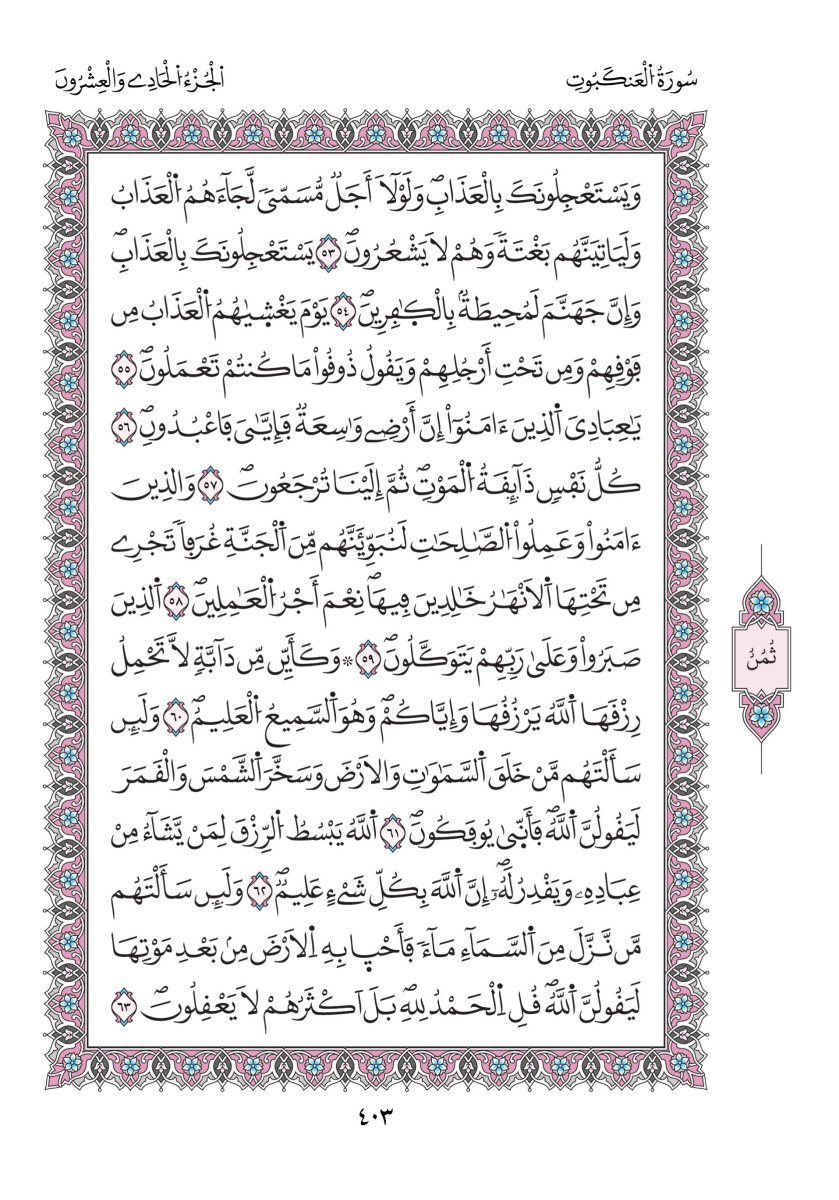 سُورَةُ اُ۬لْعَنكَبُوتِ
اَ۬لْجُزْءُ اُ۬لْحَادِے وَالْعِشْرُونَ
وَيَسْتَعْجِلُونَكَ بِالْعَذَابِۖ وَلَوْلَآ أَجَلٞ مُّسَمّيٗ لَّجَآءَهُمُ اُ۬لْعَذَابُ
وَلَيَاتِيَنَّهُم بَغْتَةٗ وَهُمْ لَا يَشْعُرُونَۖ ٥٣ يَسْتَعْجِلُونَكَ بِالْعَذَابِۖ
وَإِنَّ جَهَنَّمَ لَمُحِيطَةُۢ بِالْكٰ۪فِرِينَۖ ٥٤ يَوْمَ يَغْش۪يٰهُمُ اُ۬لْعَذَابُ مِن
فَوْقِهِمْ وَمِن تَحْتِ أَرْجُلِهِمْ وَيَقُولُ ذُوقُواْ مَا كُنتُمْ تَعْمَلُونَۖ ٥٥
يَٰعِبَادِيَ اَ۬لذِينَ ءَامَنُوٓاْ إِنَّ أَرْضِے وَٰسِعَةٞ فَإِيَّٰيَ فَاعْبُدُونِۖ ٥٦
كُلُّ نَفْسٖ ذَآئِقَةُ اُ۬لْمَوْتِۖ ثُمَّ إِلَيْنَا تُرْجَعُونَۖ ٥٧ وَالذِينَ
ءَامَنُواْ وَعَمِلُواْ اُ۬لصَّٰلِحَٰتِ لَنُبَوِّئَنَّهُم مِّنَ اَ۬لْجَنَّةِ غُرَفاٗ تَجْرِے
مِن تَحْتِهَا اَ۬لَانْهَٰرُ خَٰلِدِينَ فِيهَاۖ نِعْمَ أَجْرُ اُ۬لْعَٰمِلِينَۖ ٥٨ اَ۬لذِينَ
صَبَرُواْ وَعَلَىٰ رَبِّهِمْ يَتَوَكَّلُونَۖ ٥٩ ۞ وَكَأَيِّن مِّن دَآبَّةٖ لَّا تَحْمِلُ
رِزْقَهَا اَ۬للَّهُ يَرْزُقُهَا وَإِيَّاكُمْۖ وَهُوَ اَ۬لسَّمِيعُ اُ۬لْعَلِيمُۖ ٦٠ وَلَئِن
سَأَلْتَهُم مَّنْ خَلَقَ اَ۬لسَّمَٰوَٰتِ وَالَارْضَ وَسَخَّرَ اَ۬لشَّمْسَ وَالْقَمَرَ
لَيَقُولُنَّ اَ۬للَّهُۖ فَأَنّ۪يٰ يُوفَكُونَۖ ٦١ اَ۬للَّهُ يَبْسُطُ اُ۬لرِّزْقَ لِمَنْ يَّشَآءُ مِنْ
عِبَادِهِۦ وَيَقْدِرُ لَهُۥٓۖ إِنَّ اَ۬للَّهَ بِكُلِّ شَےْءٍ عَلِيمٞۖ ٦٢ وَلَئِن سَأَلْتَهُم
مَّن نَّزَّلَ مِنَ اَ۬لسَّمَآءِ مَآءٗ فَأَحْي۪ا بِهِ اِ۬لَارْضَ مِنۢ بَعْدِ مَوْتِهَا
لَيَقُولُنَّ اَ۬للَّهُۖ قُلِ اِ۬لْحَمْدُ لِلهِۖ بَلَ اَكْثَرُهُمْ لَا يَعْقِلُونَۖ ٦٣
ثُمُنُ
٤٠٣